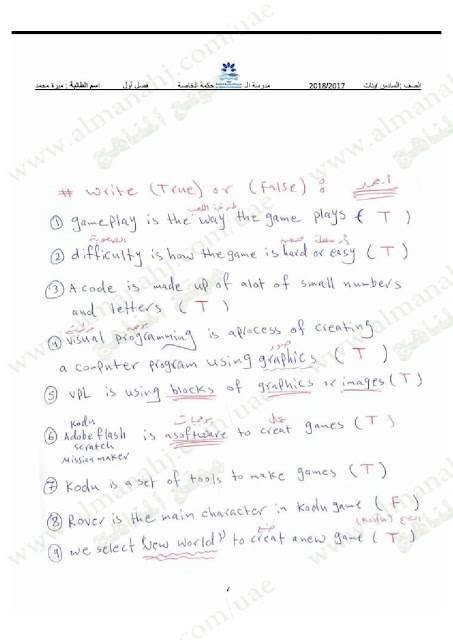 الصف :السادس /بنات 2018/2017 مدرسة الـ حكمة الخاصة فصل أول اسم الطالبة : ميرة محمد
# write (True) or (false) :
طريقة اللعب
① gameplay is the way the game plays ( T )
الصعوبة صعبة أو سهلة
② difficulty is how the game is hard or easy ( T )
③ A code is made up of alot of small numbers
and letters ( T )
مرئية برمجة
④ visual programming is aprocess of creating
صور
a computer program using graphics ( T )
⑤ VPL is using blocks of graphics or images ( T )
Kodu برمجيات عمل
⑥ Adobe flash is asoftware to creat games ( T )
scratch
Mission maker
⑦ Kodu is a set of tools to make games ( T )
⑧ Rover is the main character in Kodu game ( F )
(Kodu)
صنع
⑨ we select "New world" to creat anew game ( T )
www.almanahj.com/uae
موقع المناهج